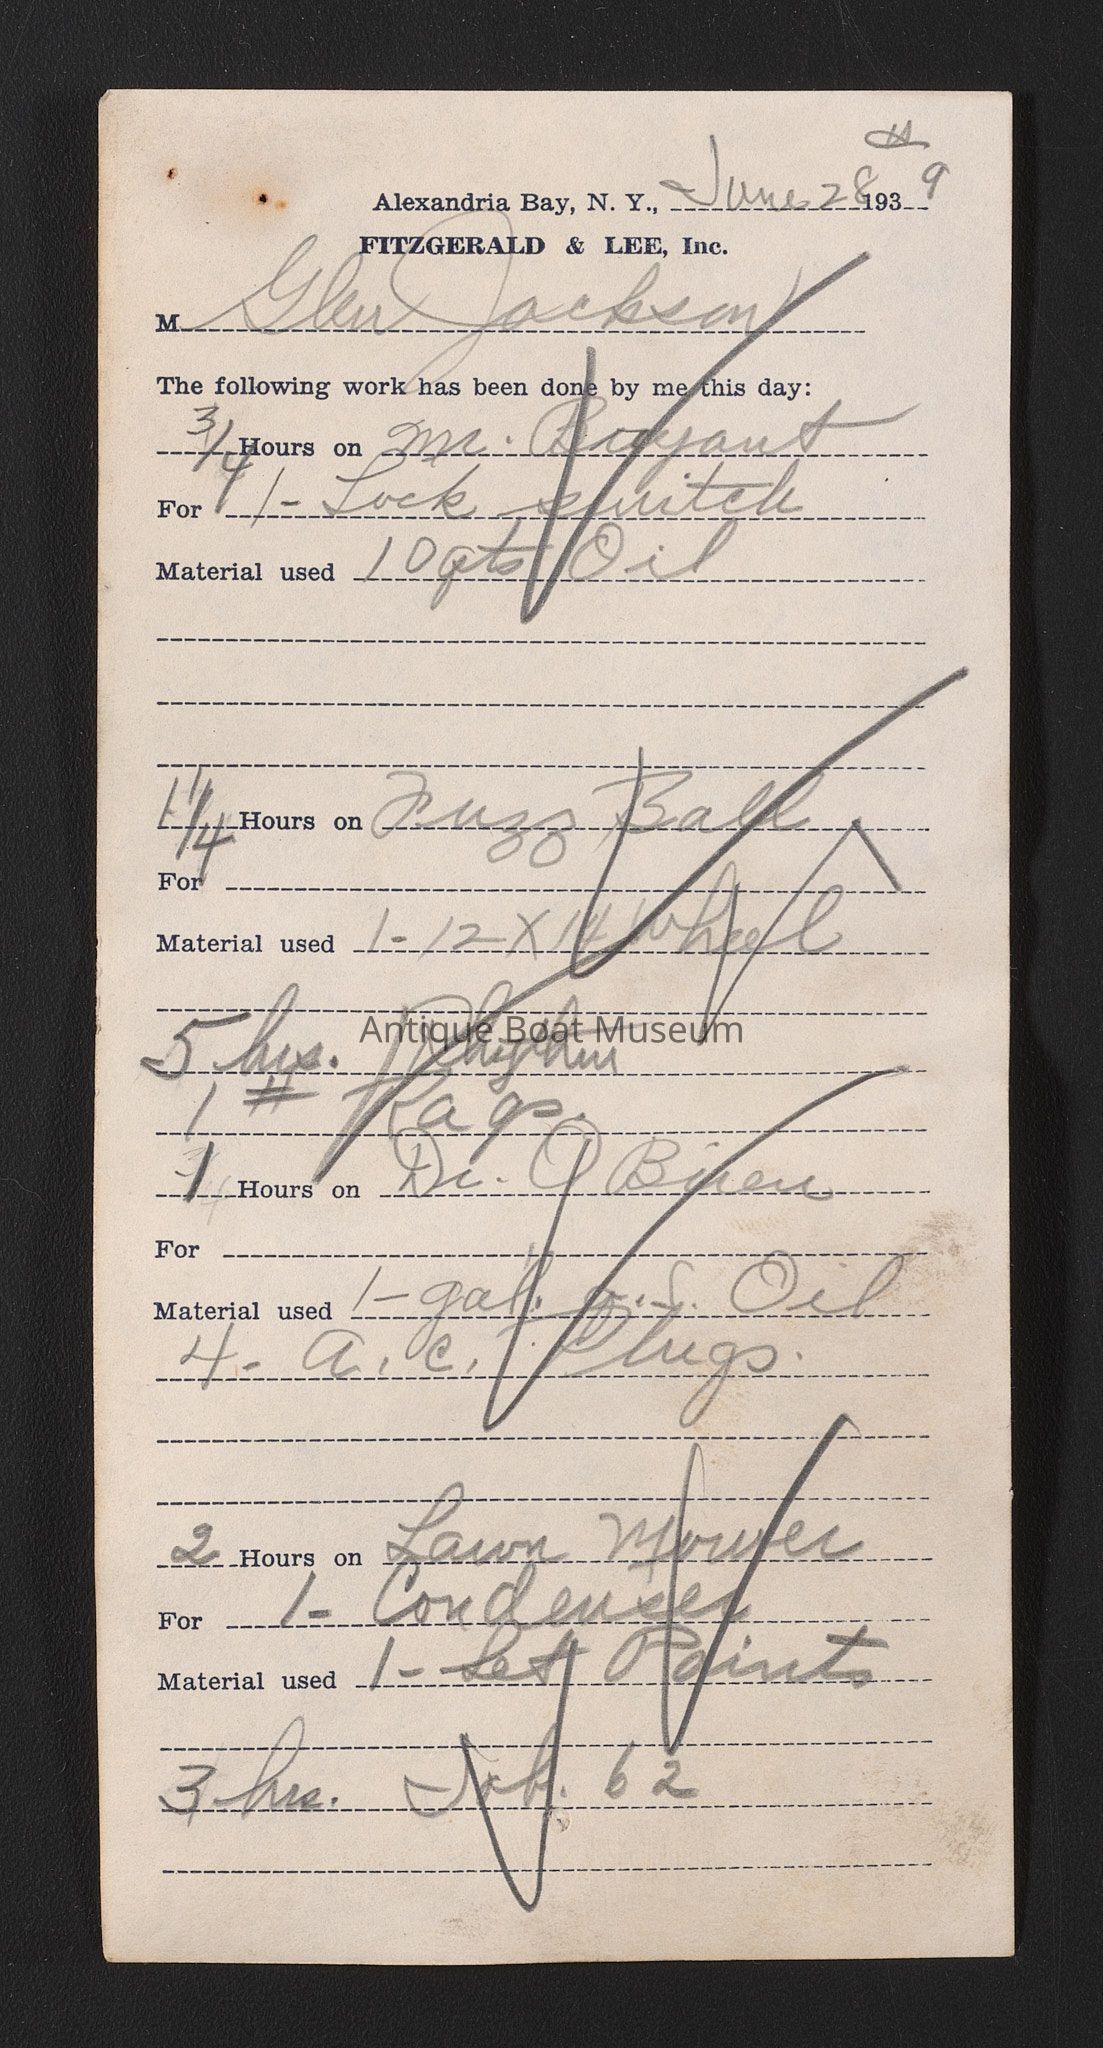 Alexandria Bay, N. Y., June 28 1939
FITZGERALD & LEE, Inc.
M Glen Jackson
The following work has been done by me this day:
3/4 Hours on Mr. Bryant
For 1- Lock switch
Material used 10 qts Oil
1 1/4 Hours on Fuzz Ball
For
Material used 1- 12 X 14 Wheel
Antique Boat Museum
5 hrs. Rhythm
1 # Rags.
1 Hours on Dr. O Brien
For
Material used 1- gal. g.s. Oil
4- a.c. Plugs.
2 Hours on Lawn Mower
For 1- Condenser
Material used 1- Set Points
3 hrs. Job. 62